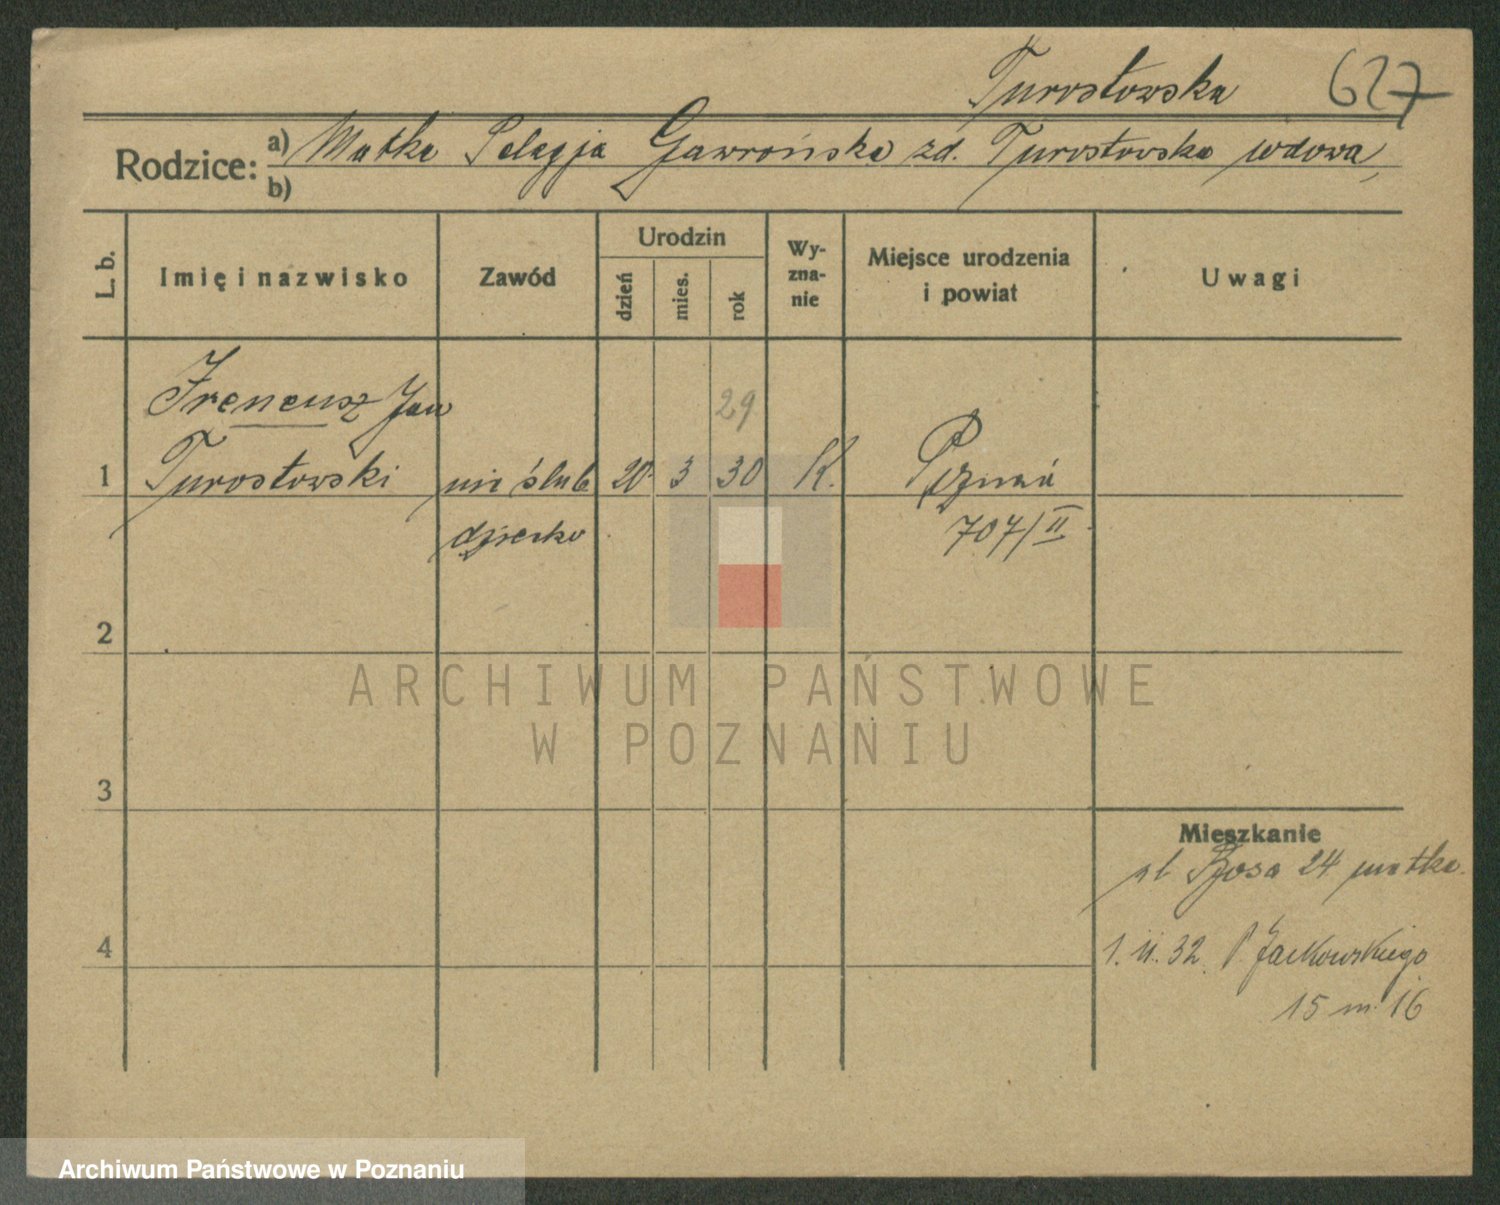 Turostowska 627
Rodzice: a) Matka Pelagja Gawrońska zd. Turostowska wdowa,
b)
L. b. Imię i nazwisko Zawód Urodzin dzień mies. rok Wyznanie Miejsce urodzenia i powiat Uwagi
Ireneusz Jan 29
1 Turostowski nie ślub 20 3 30 K. Poznań
dziecko 707/II
2
ARCHIWUM PAŃSTWOWE
W POZNANIU
3
Mieszkanie
24 matka.
4 1. II. 32. P. Jackowskiego
15 m. 16
Archiwum Państwowe w Poznaniu